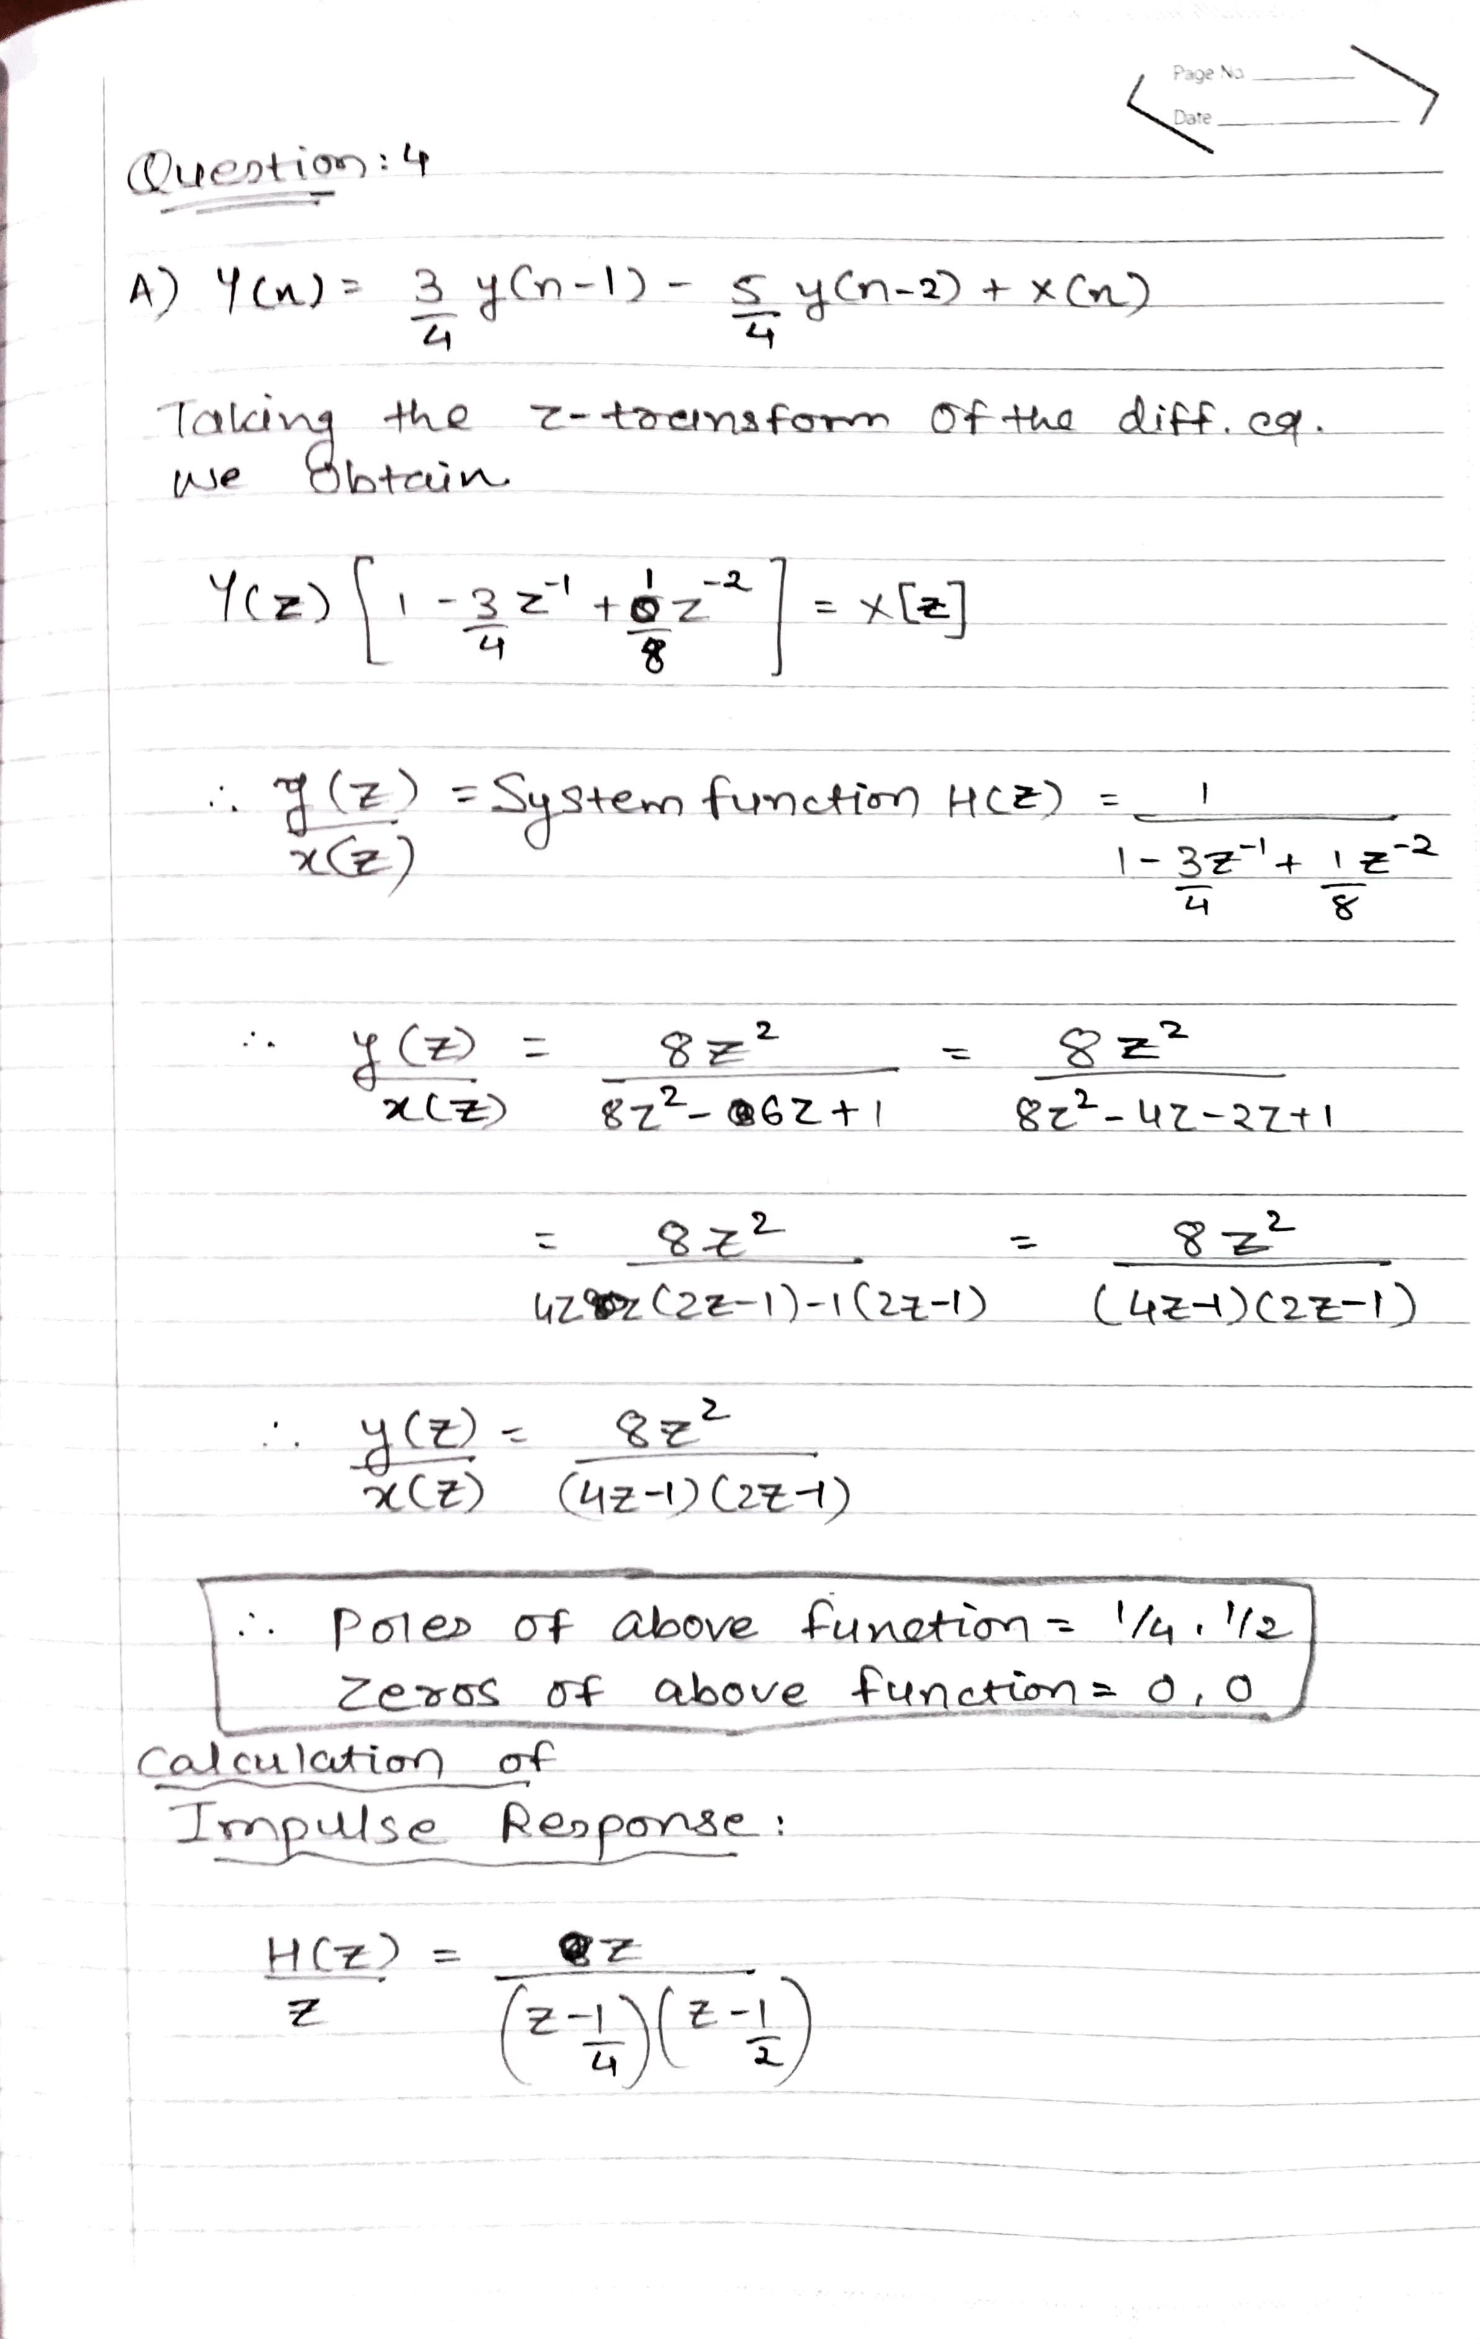 Page No
Date
Question: 4
A) Y(n) = 3/4 y(n-1) - 5/4 y(n-2) + x(n)
Taking the z-transform of the diff. eq.
we obtain
Y(z) [1 - 3/4 z^-1 + 1/8 z^-2] = x[z]
∴ y(z)/x(z) = System function H(z) = 1/(1 - 3/4 z^-1 + 1/8 z^-2)
∴ y(z)/x(z) = 8z^2/(8z^2 - 6z + 1) = 8z^2/(8z^2 - 4z - 2z + 1)
= 8z^2/(4z(2z-1) - 1(2z-1)) = 8z^2/((4z-1)(2z-1))
∴ y(z)/x(z) = 8z^2/((4z-1)(2z-1))
∴ Poles of above function = 1/4, 1/2
Zeros of above function = 0, 0
Calculation of
Impulse Response:
H(z)/z = z/((z - 1/4)(z - 1/2))